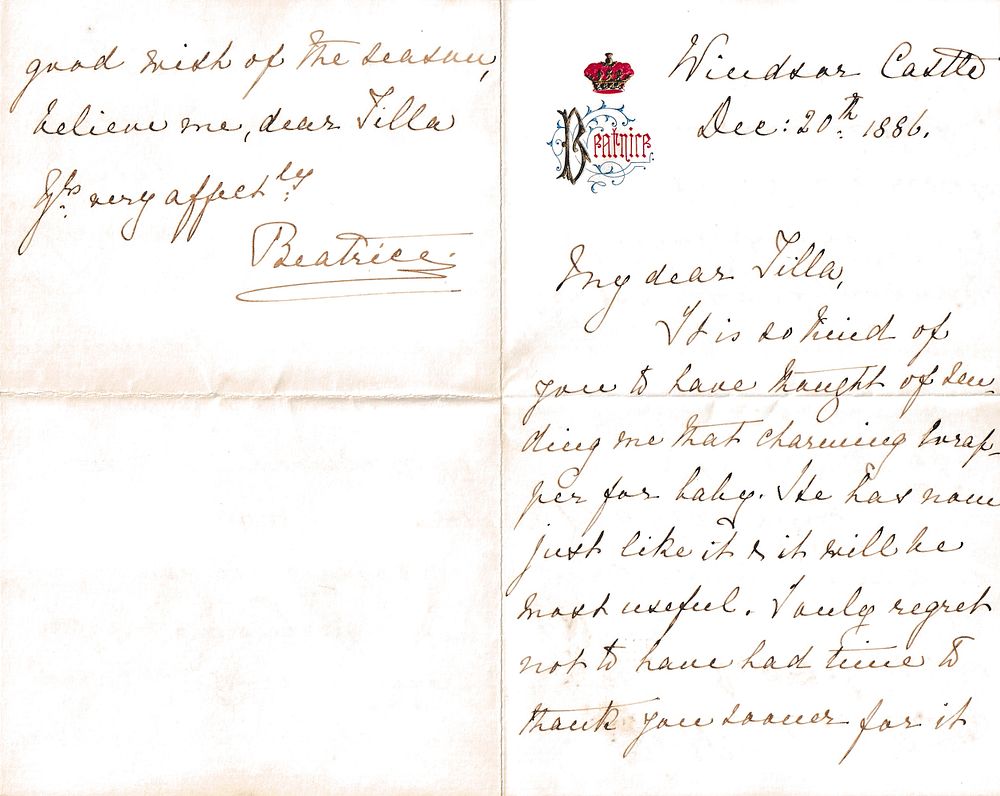 Beatrice
Windsor Castle
Dec: 20th 1886.
My dear Tilla,
It is so kind of
you to have thought of sen-
ding me that charming wrap-
per for baby. He has none
just like it & it will be
most useful. I only regret
not to have had time to
thank you sooner for it
good wish of the season,
believe me, dear Tilla
Yrs very affectly
Beatrice.